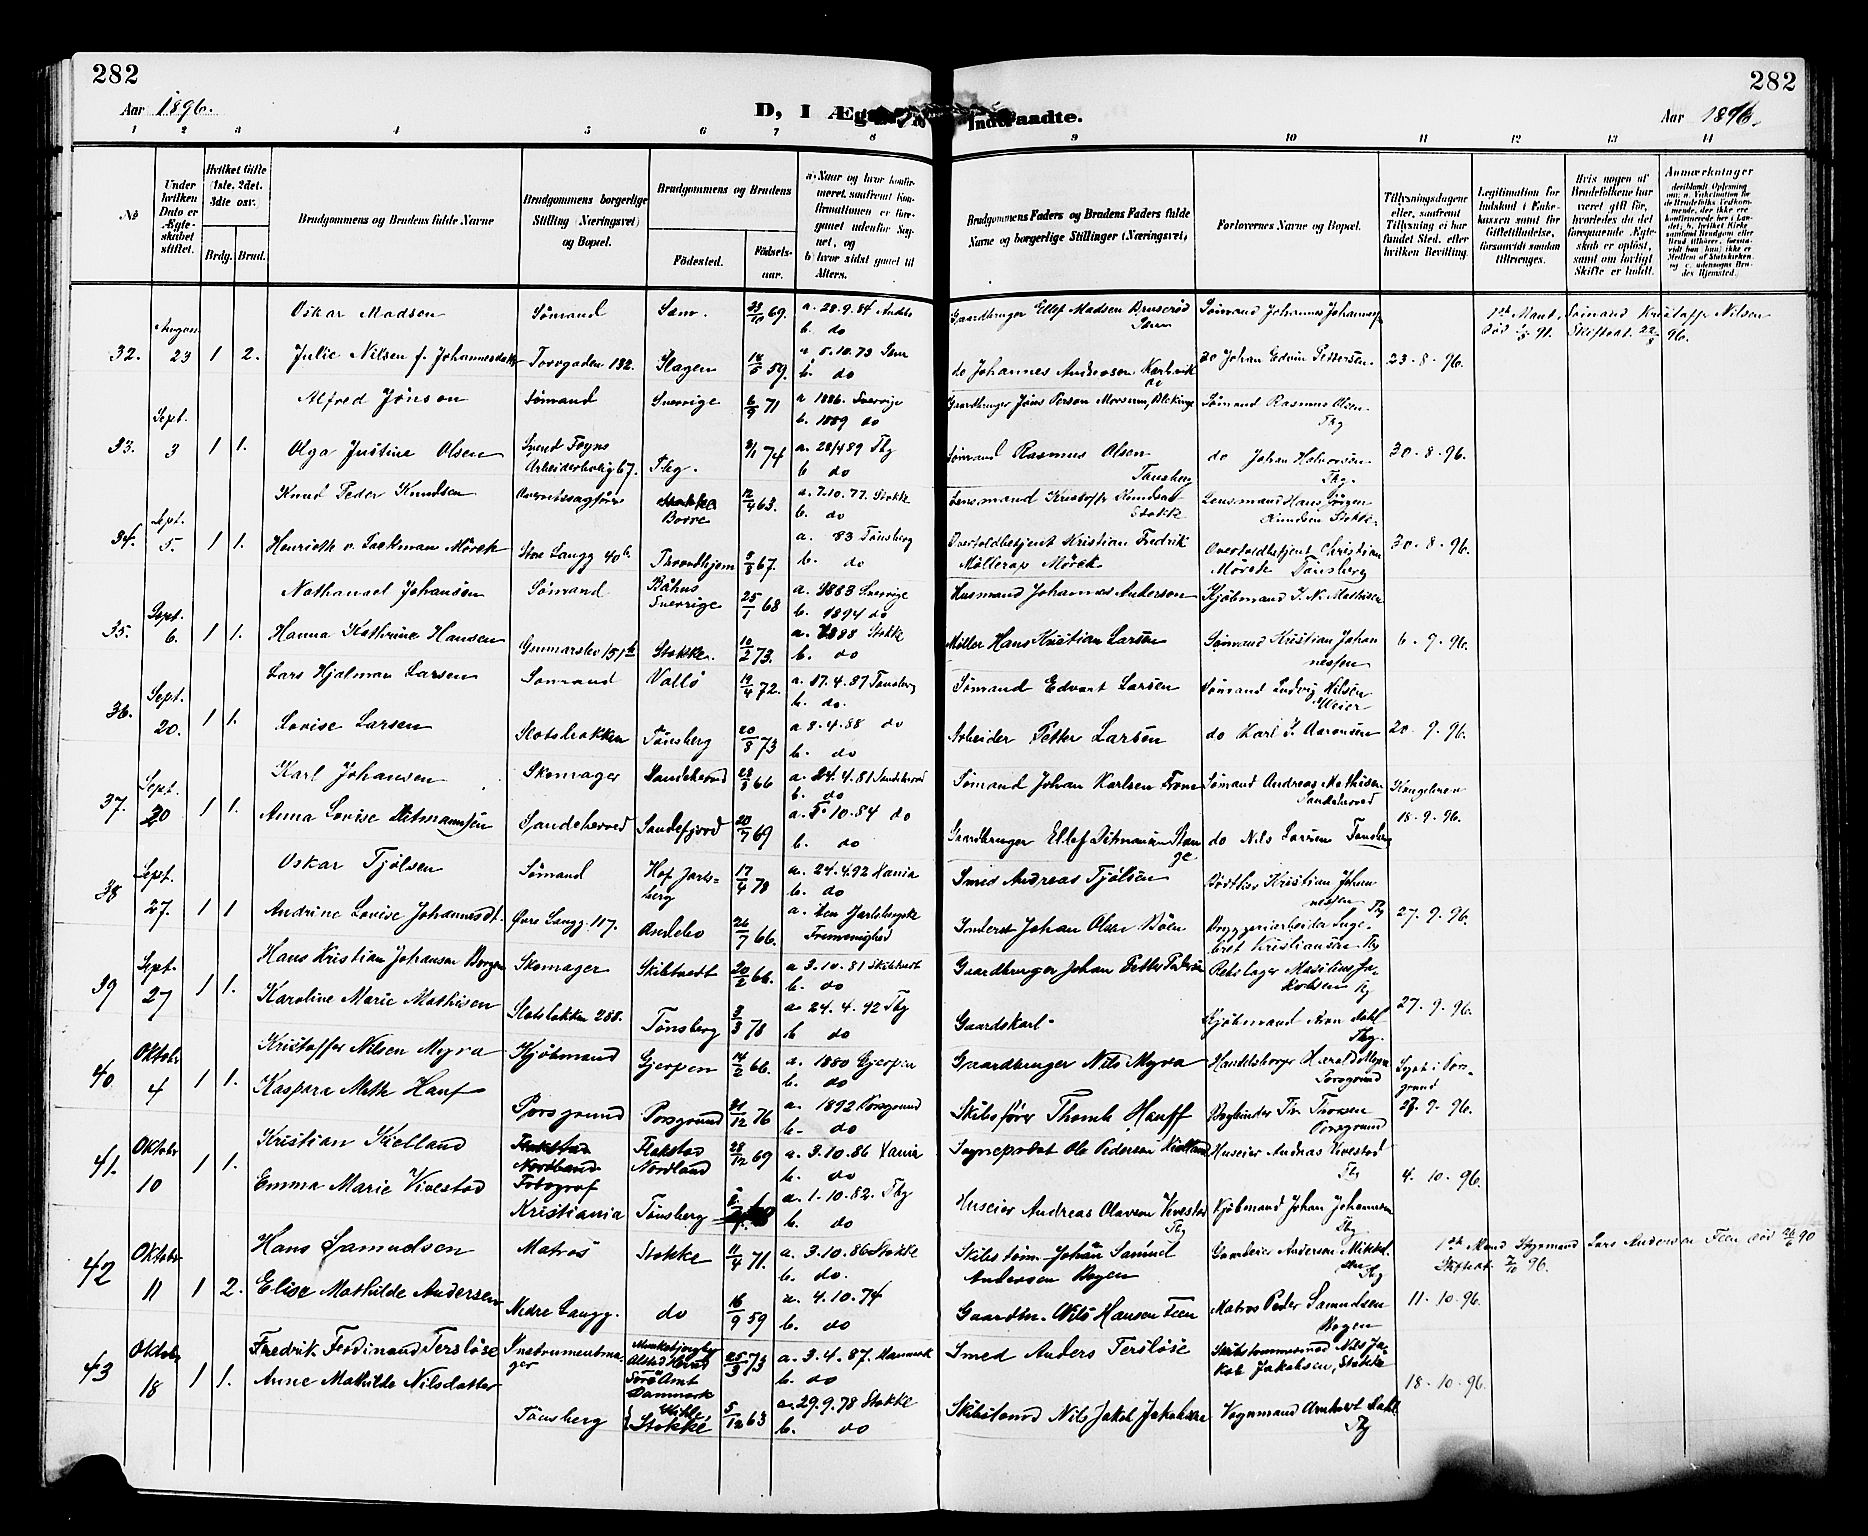 282
282
Aar 1896.
D, I Ægte
Indtraadte.
Aar 1896.
1 2 3 4 5 6 7 8 9 10 11 12 13 14
No
Under hvilken Dato er Ægteskabet stiftet.
Hvilket Gifte (1ste, 2det, 3die osv.
Brdg. Brud.
Brudgommens og Brudens fulde Navne
Brudgommens borgerlige Stilling (Næringsvei) og Bopæl.
Brudgommens og Brudens
Fødested.
Fødselsaar.
a) Naar og hvor konfirmeret, saafremt Konfirmationen er foregaaet udenfor Sognet, og
b) hvor sidst gaaet til Alters.
Brudgommens Faders og Brudens Faders fulde Navne og borgerlige Stillinger (Næringsvei)
Forlovernes Navne og Bopæl.
Tillysningsdagene eller, saafremt Tillysning ei har fundet Sted, efter hvilken Bevilling.
Legitimation for Indskud i Enkekassen samt for Giftetilladelse, forsaavidt saadan tiltrænges.
Hvis nogen af Brudefolkene har været gift før, hvorledes da det foregaaende Ægteskab er opløst, samt om lovligt Skifte er holdt.
Anmærkninger
Oskar Madsen Sømand Sem. 23/10 69. a. 28.9.84 Andebo
b. do
Gaardbruger Ellef Madsen Bruserød Sem
Sømand Johannes Johannesen
1ste Mand, Sømand Kristoffer Nilsen
død 91. Skifteat. 96.
32. August 23 1 2. Julie Nilsen f. Johannesdatter Torvgaden 132. Slagen 59. a 5.10.73 Sem
b. do
do Johannes Andersen Karlsvik do
do Johan Edvin Pettersen 23-8-96.
Alfred Jönson Sømand Sverrige 6/9 71 a 1886. Sverrige
b. 1889 do
Gaardbruger Jöns Person Morserum, Blekinge
Sømand Rasmus Olsen Tbg
33. Sept. 3 1 1. Olga Justine Olsen Svend Foyns Arbeiderbolig 67. Tbg. 74 a. 28/4 89 Tbg
b do
Sømand Rasmus Olsen Tønsberg
do Johan Halvorsen Tbg. 30-8-96.
Knud Peder Knudsen Overretssagfører Borre 12/4 63. a. 7.10.77. Stokke
b. do
Lensmand Kristoffer Knudsen Stokke
Lensmand Hans Jørgen Knudsen Stokke.
34. Sept. 5. 1 1. Henriette v. Mørch Store Langg 40b Throndhjem 67. a. 83 Tønsberg
b. do
Overtoldbetjent Kristian Fredrik Møllerop Mørch
Overtoldbetjent Christian Mørch Tønsberg 30-8-96.
Nathanael Johansen Sømand Båhus Sverrige 25/1 68 a. 1883 Sverrige
b. 1894 do
Husmand Johannes Anderson
Kjøbmand J. N. Mathisen
35. Sept. 6. 1 1. Hanna Kathrine Hansen Gunnarsbø 151b Stokke. 10/2 73. a. 1888 Stokke
b. do
Møller Hans Kristian Larsen
Sømand Kristian Johannessen 6-9-96.
Lars Hjalmar Larsen Sømand Vallø 19/4 72. a. 17.4.87 Tønsberg
b. do.
Sømand Edvart Larsen
Sømand Ludvig Nilsen Meier
36. Sept. 20. 1 1. Lovise Larsen Slotsbakken Tønsberg 20/8 73 a 8.4.88 do
b. do
Arbeider Petter Larsen
do Karl J. Aaronsen 20.9.96.
Karl Johansen Skomager Sandeherred 66 a. 24.4.81 Sandeherred
b. do
Sømand Johan Karlsen Fram
Sømand Andreas Mathisen Sandeherred
Kongebrev
37. Sept. 20 1 1. Anna Lovise Ditmannsen Sandeherred Sandefjord 20/9 69 a. 5.10.84 do
b. do
Gaardbruger Ellef Ditmansen Stange
do Nils Larsen Tønsberg 18.9.96.
Oskar Tjølsen Sømand Hof Jarlsberg 17/4 78 a. 24.4.92 Xania
b. do
Smed Andreas Tjølsen
Bødtker Kristian Johannessen Tbg
38 Sept. 27. 1 1 Andrine Lovise Johannesdt. Øvre Langg. 117. Andebo 26/7 66. a. i den Jarlsbergske Fremenighed
Inderst Johan Olsen Bøen
Bryggeriarbeider Ingebret Kristiansen Tbg 27.9.96.
Hans Kristian Johansen Borgen Skomager Skibtvedt 20/2 66. a 3.10.81 Skibtvedt
b. do
Gaardbruger Johan Petter Pedersen
Rebslager Mauritius Jakobsen Tbg
39 Sept. 27 1 1. Karoline Marie Mathisen Slotsbakken 288. Tønsberg 3/3 78 a 24.4.92 Tbg
b do
Gaardskarl
Kjøbmand Aron Dahl Tbg. 27.9.96.
Kristoffer Nilsen Myra Kjøbmand Gjerpen 14/2 66. a. 1880 Gjerpen
b. do
Gaardbruger Nils Myra
Handelsborger Harald Myra Porsgrund
Lyst i Porsgrund
40 Oktobr 4 1 1. Kaspara Methe Hauff Porsgrund Porsgrund 31/12 76 a. 1892 Porsgrund
b. do
Skibsfører Thomb Hauff
Bogbinder Thorsen Porsgrund 27.9.96.
Kristian Kielland Flakstad Nordland Fotograf Flakstad Nordland 28/12 69 a. 3.10.86 Xania
b. do
Sogneprest Ole Pedersen Kielland
Huseier Andreas Vivestad Tbg
41. Oktobr 10 1 1. Emma Marie Vivestad Kristiania Tønsberg 68 a. 1.10.82. Tbg
b. do
Huseier Andreas Olavsen Vivestad Tbg
Kjøbmand Johan Johannesen Tbg 4.10.96.
Hans Samuelsen Matros Stokke 11/4 71. a. 3.10.86 Stokke
b. do.
Skibstøm. Johan Samuel Andersen Bogen
Gaardeier Anderson Mikkelsen Tbg
1ste Mand Styrmand Lars Andersen Feen død 26/6 90
Skifteat. 2/10 96.
42 Oktobr 11 1 2. Elise Mathilde Andersen Nedre Langg. do 16/9 59 a. 4.10.74
b. do
Gaardm. Nils Hansen Feen
Matros Peder Samuelsen Bogen 11.10.96.
Fredrik Ferdinand Tersløse Instrumentmager Munkebjergby Alsted Herred Sorø Amt Danmark 25/3 73 a. 3.4.87. Danmark
b. do
Smed Anders Tersløse
Skibstømmermand Nils Jakob Jakobsen, Stokke
43 Oktobr 18 1 1. Anne Mathilde Nilsdatter Tønsberg Stokke 5/12 63 a. 29.9.78 Stokke
b. do
Skibstømd Nils Jakob Jakobsen
Vognmand Anthort Dahl Tbg 18.10.96.